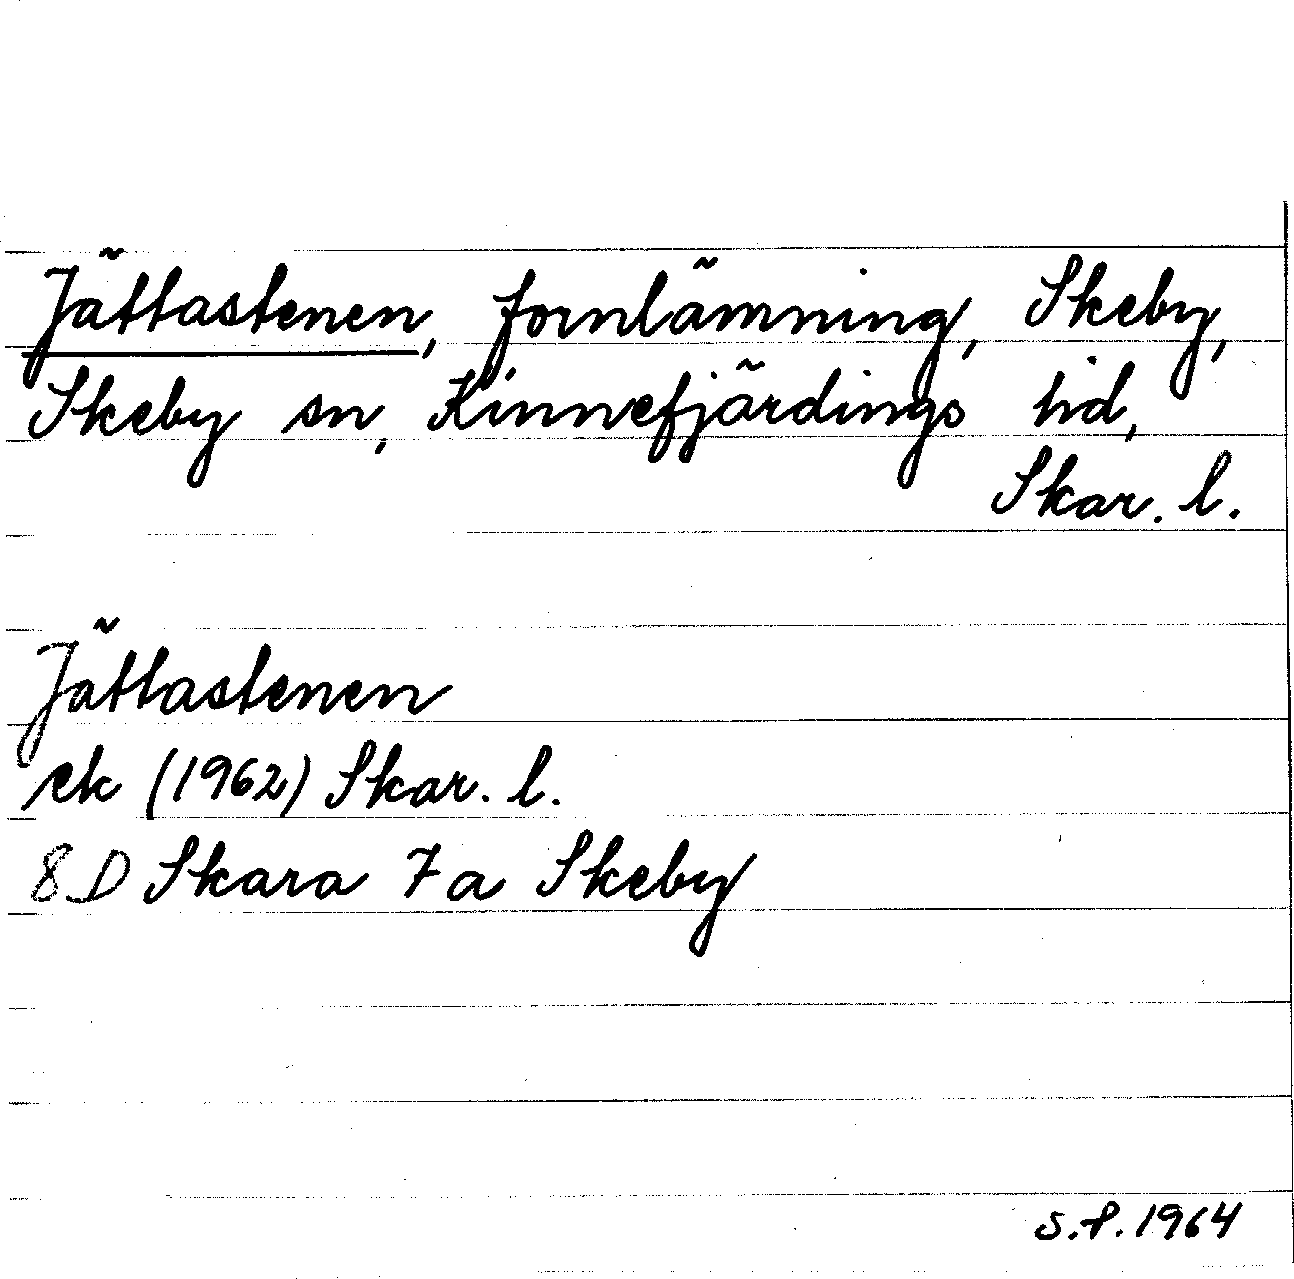 Jättastenen, fornlämning, Skeby,
Skeby sn, Kinnefjärdings hd,
Skar. l.
Jättastenen
ek (1962) Skar. l.
8D Skara 7a Skeby
S.P. 1964